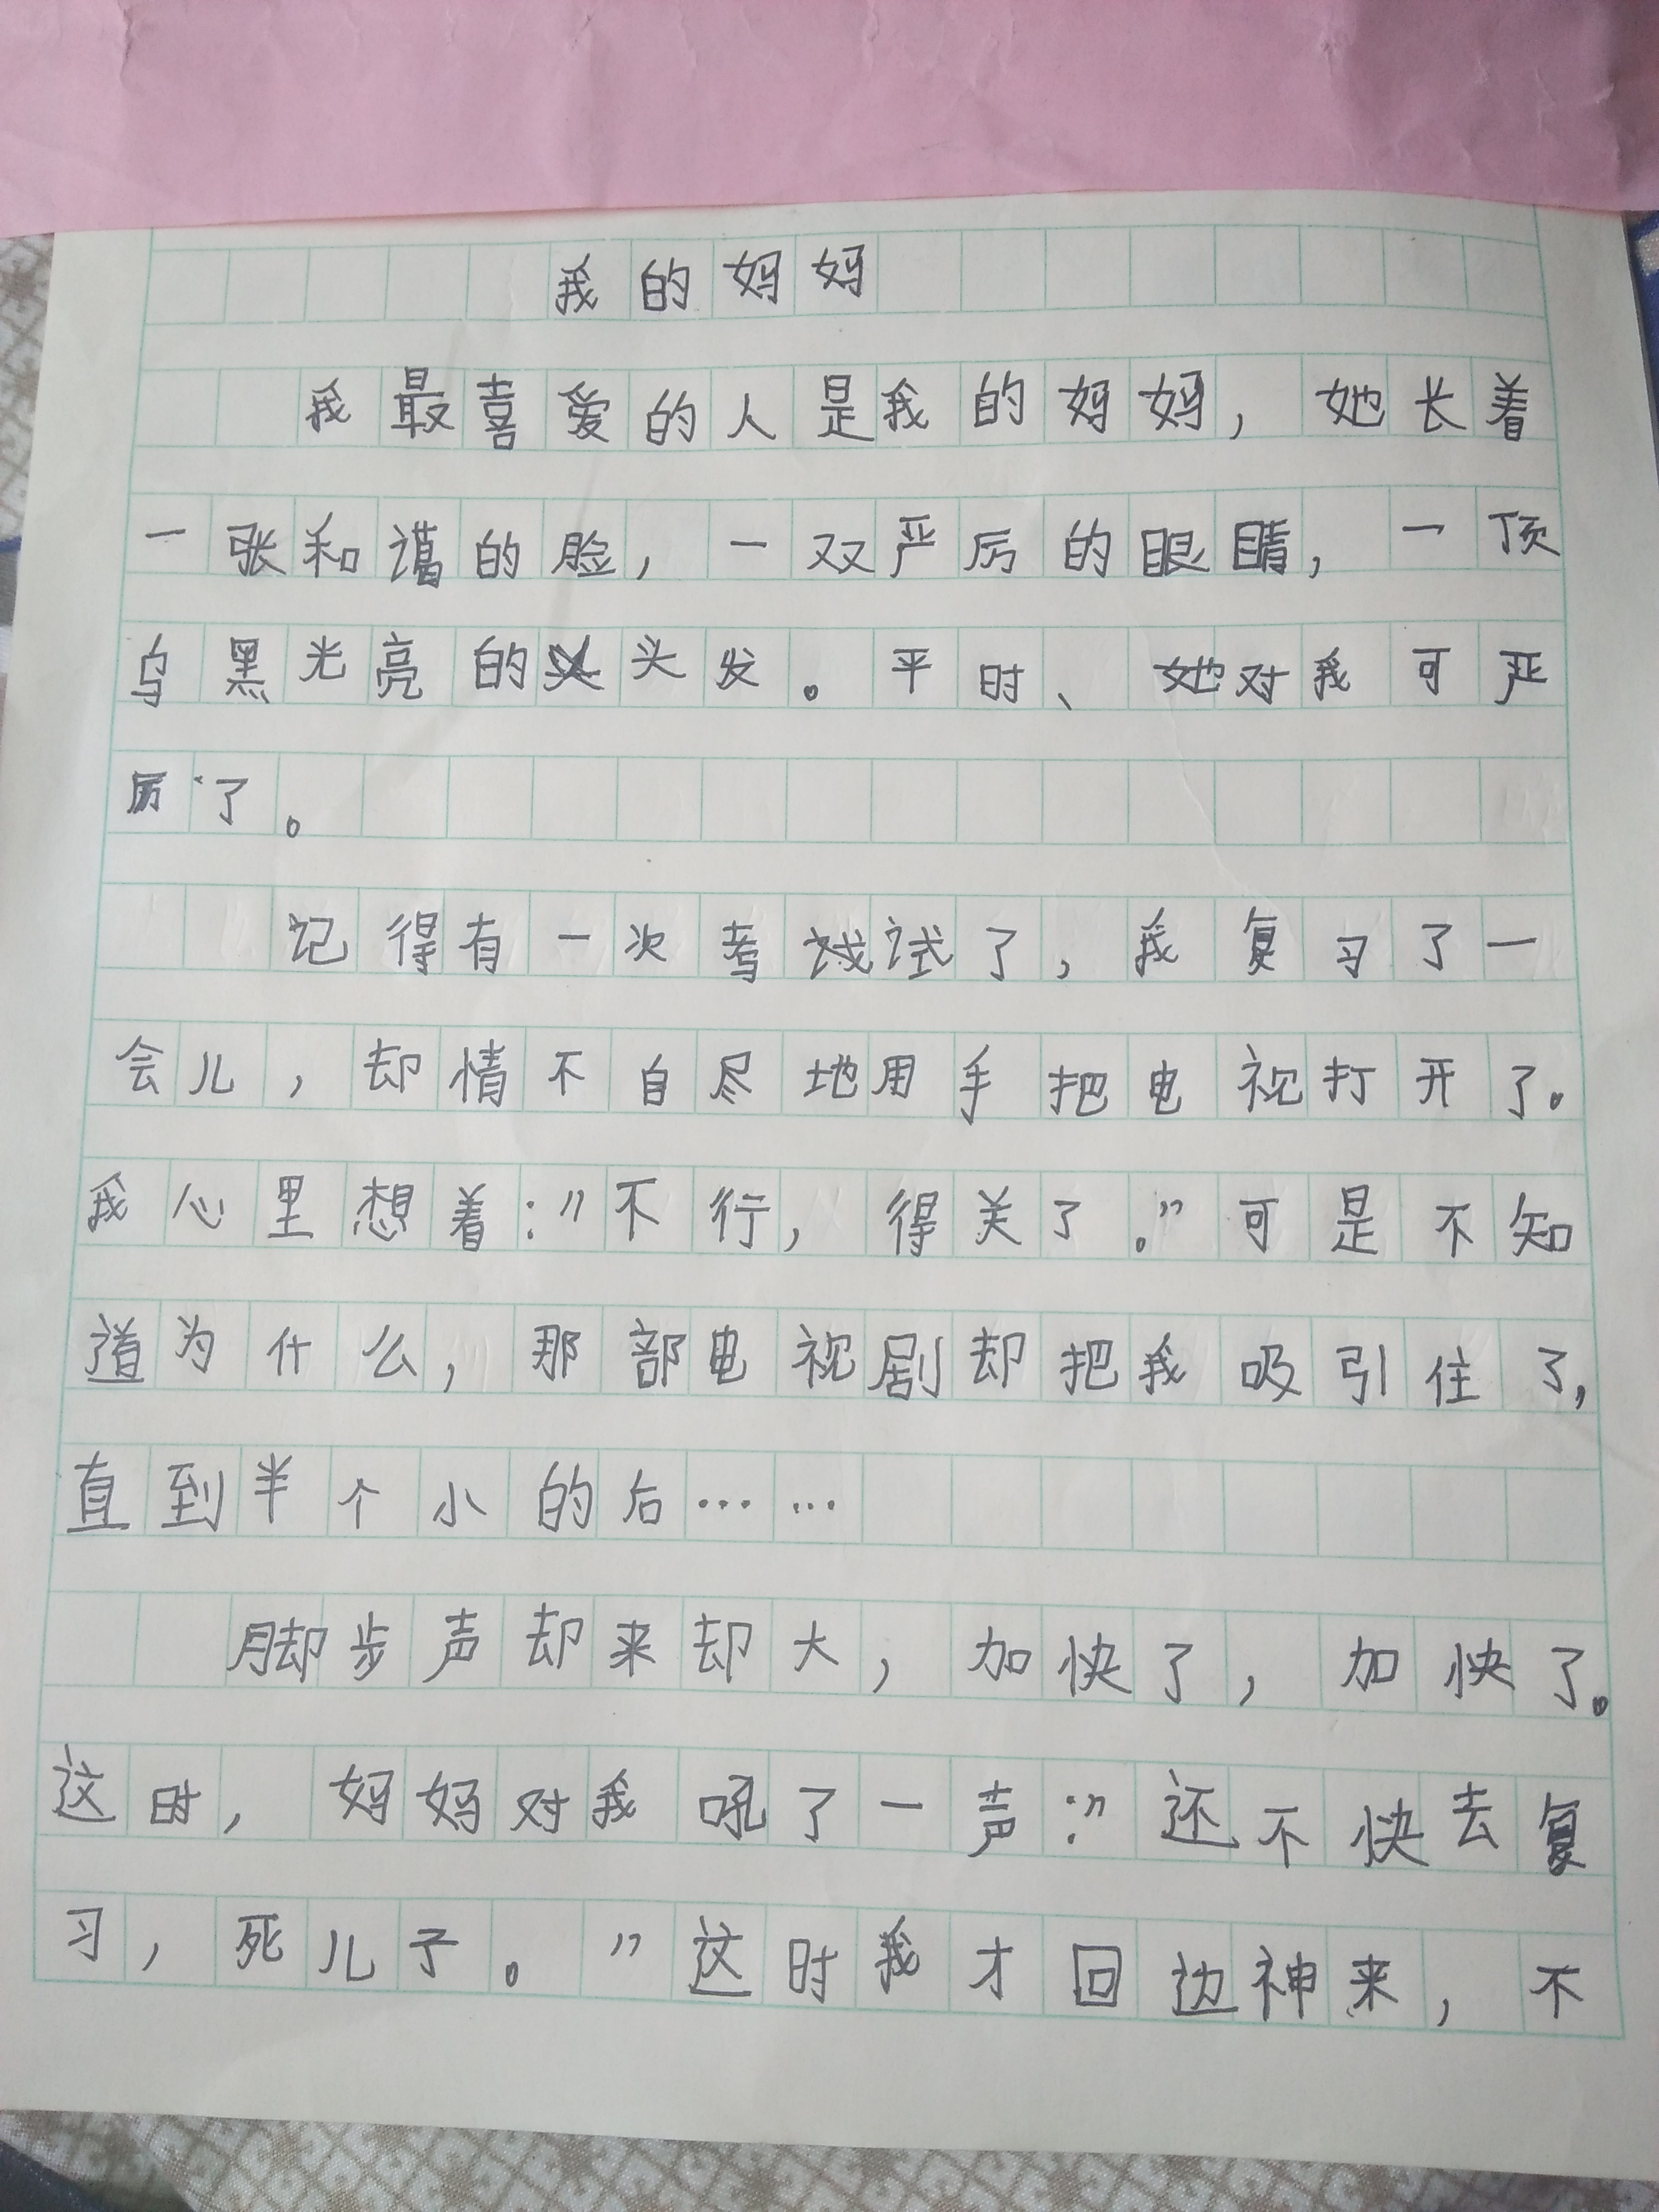 我的妈妈
我最喜爱的人是我的妈妈，她长着
一张和蔼的脸，一双严厉的眼睛，一顶
乌黑光亮的头发。平时、她对我可严
厉了。
记得有一次考试了，我复习了一
会儿，却情不自尽地用手把电视打开了。
我心里想着：”不行，得关了。”可是不知
道为什么，那部电视剧却把我吸引住了，
直到半个小的后……
脚步声却来却大，加快了，加快了。
这时，妈妈对我吼了一声：”还不快去复
习，死儿子。”这时我才回边神来，不